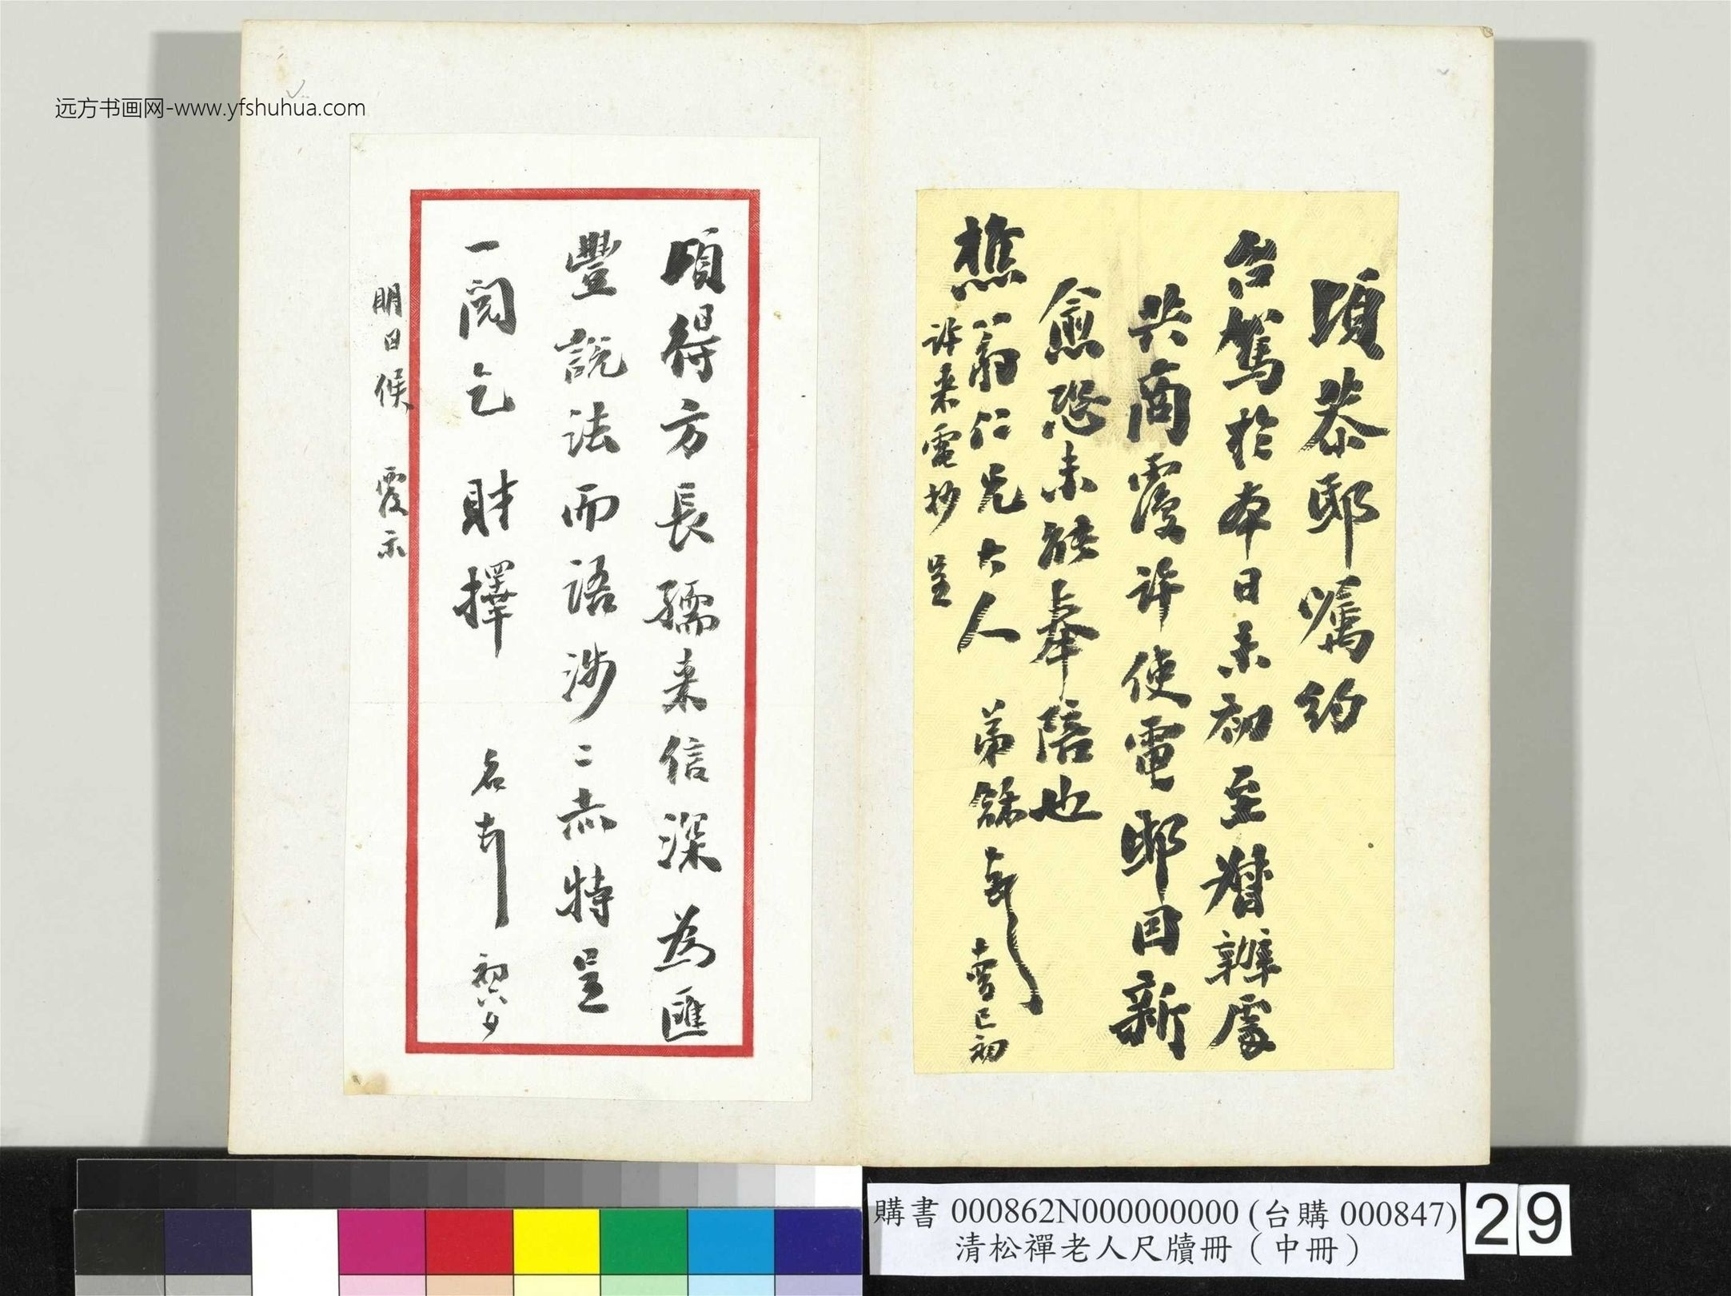 远方书画网-www.yfshuhua.com
頃恭邸囑約
台駕於本日未初至督辦處
共商覆許使電邸因新
愈恐未能奉陪也
樵翁仁兄大人 弟龢
巳初
許來電抄呈
頃得方長孺來信深為匯
豐說法而語涉二赤特呈
一閱乞財擇 名 初六夕
明日候 覆示
購書 000862N000000000 (台購 000847)
清松禪老人尺牘冊（中冊）
29